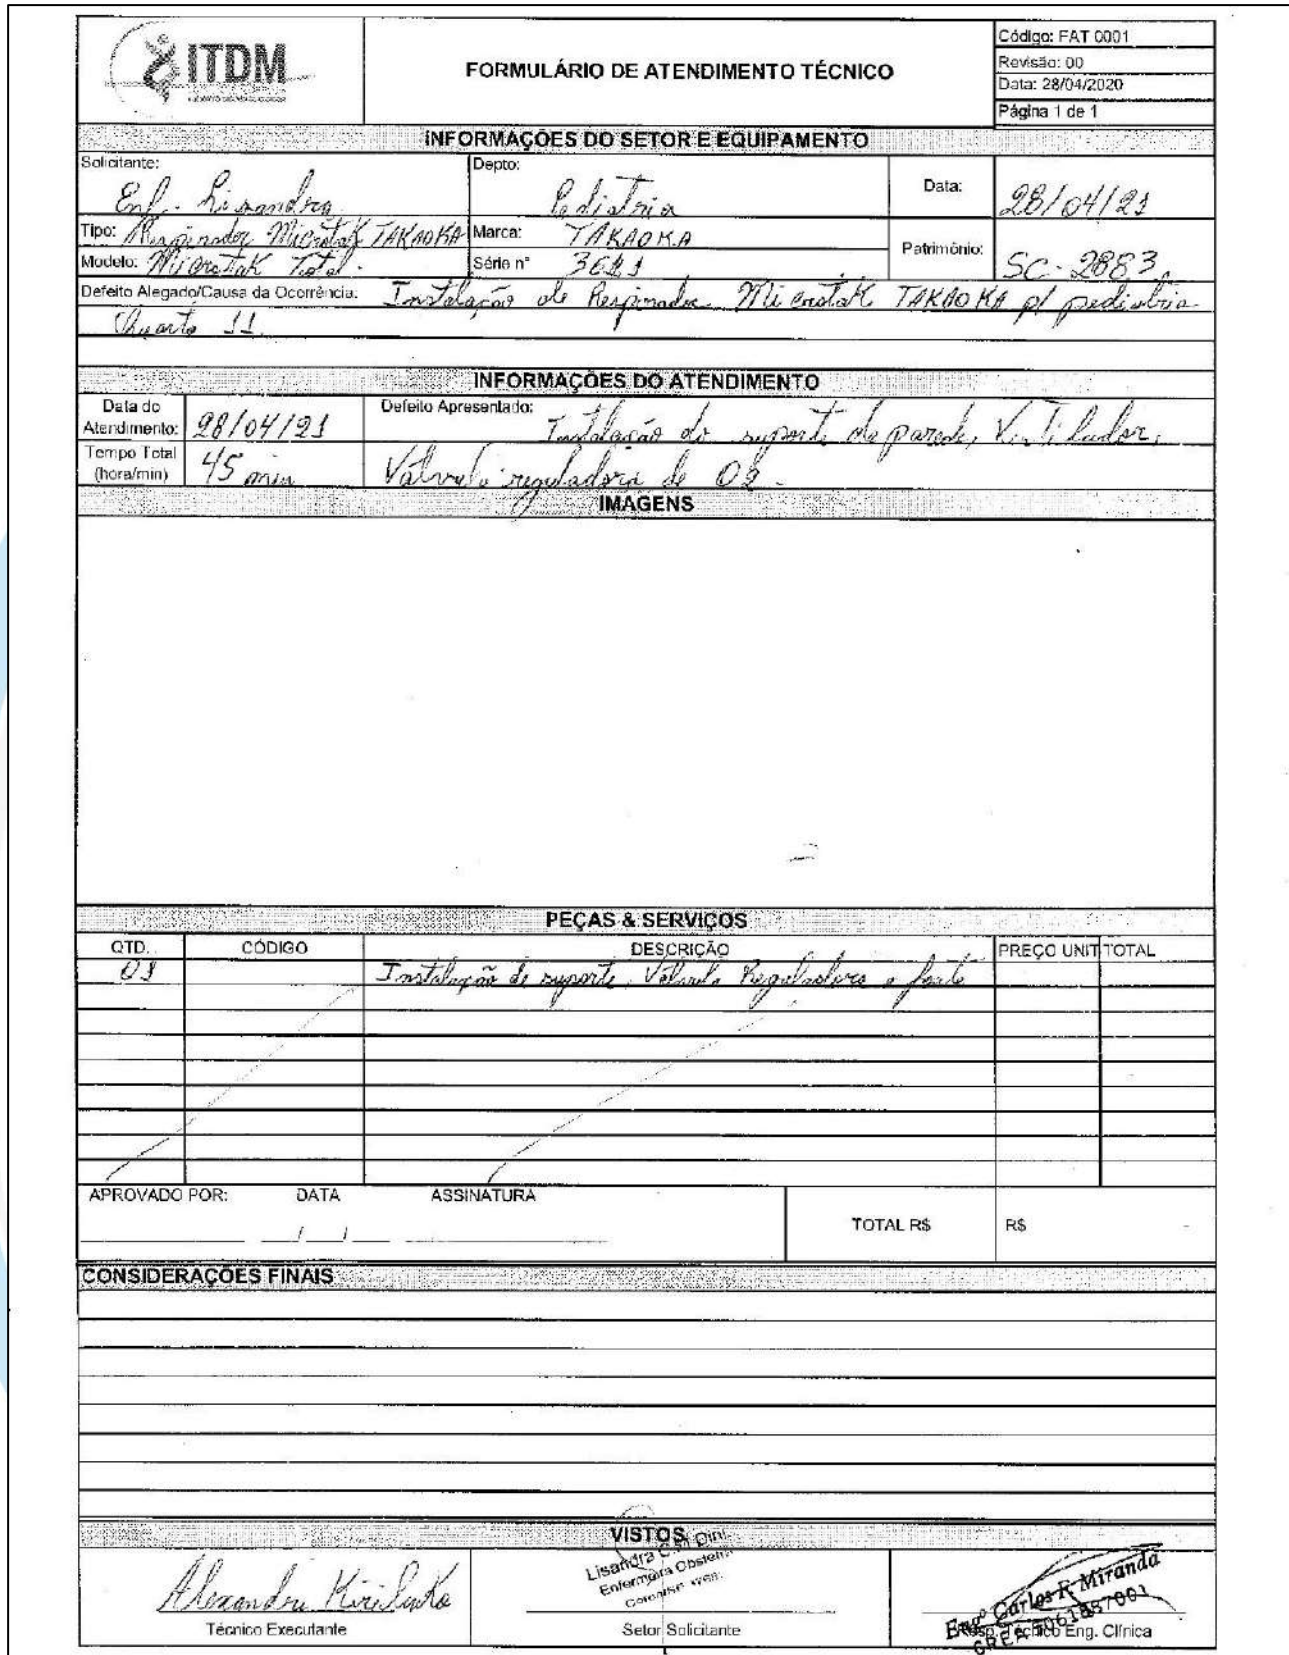 ITDM
FORMULÁRIO DE ATENDIMENTO TÉCNICO
Código: FAT 0001
Revisão: 00
Data: 28/04/2020
Página 1 de 1
INFORMAÇÕES DO SETOR E EQUIPAMENTO
Solicitante: Enf. Lisandra
Depto: Pediatria
Data: 28/04/21
Tipo: Respirador Microtak TAKAOKA
Marca: TAKAOKA
Patrimônio: SC-2883
Modelo: Microtak Total.
Série n° 3611
Defeito Alegado/Causa da Ocorrência: Instalação de Respirador Microtak TAKAOKA p/ pediatria
Quarto 11
INFORMAÇÕES DO ATENDIMENTO
Data do Atendimento: 28/04/21
Defeito Apresentado: Instalação do suporte de parede, Ventilador,
Tempo Total (hora/min) 45 min
Válvula reguladora de O2.
IMAGENS
PEÇAS & SERVIÇOS
QTD. CÓDIGO DESCRIÇÃO PREÇO UNIT TOTAL
01 Instalação de suporte, Válvula Reguladora e fonte
APROVADO POR: DATA ASSINATURA
TOTAL R$ R$ -
CONSIDERAÇÕES FINAIS
VISTOS
Lisandra
Enfermeira
Alexandre Kirilenko
Engº Carlos R Miranda
CREA 5061887001
Técnico Executante
Setor Solicitante
Resp. Técnico Eng. Clínica